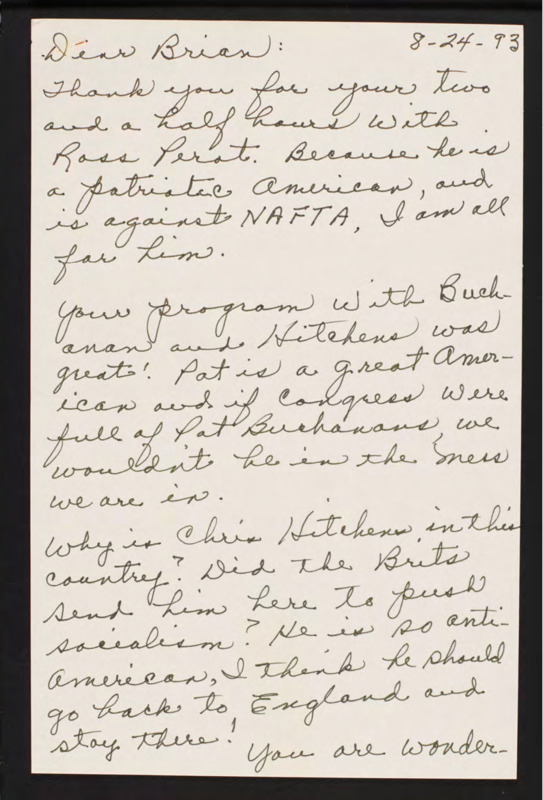 Dear Brian: 8-24-93
Thank you for your two
and a half hours with
Ross Perot. Because he is
a patriotic American, and
is against NAFTA, I am all
for him.
Your program with Buch-
anan and Hitchens was
great! Pat is a great Amer-
ican and if Congress were
full of Pat Buchanans, we
wouldn't be in the mess
we are in.
Why is Chris Hitchens in this
country? Did the Brits
send him here to push
socialism? He is so anti-
American, I think he should
go back to England and
stay there!
You are wonder-